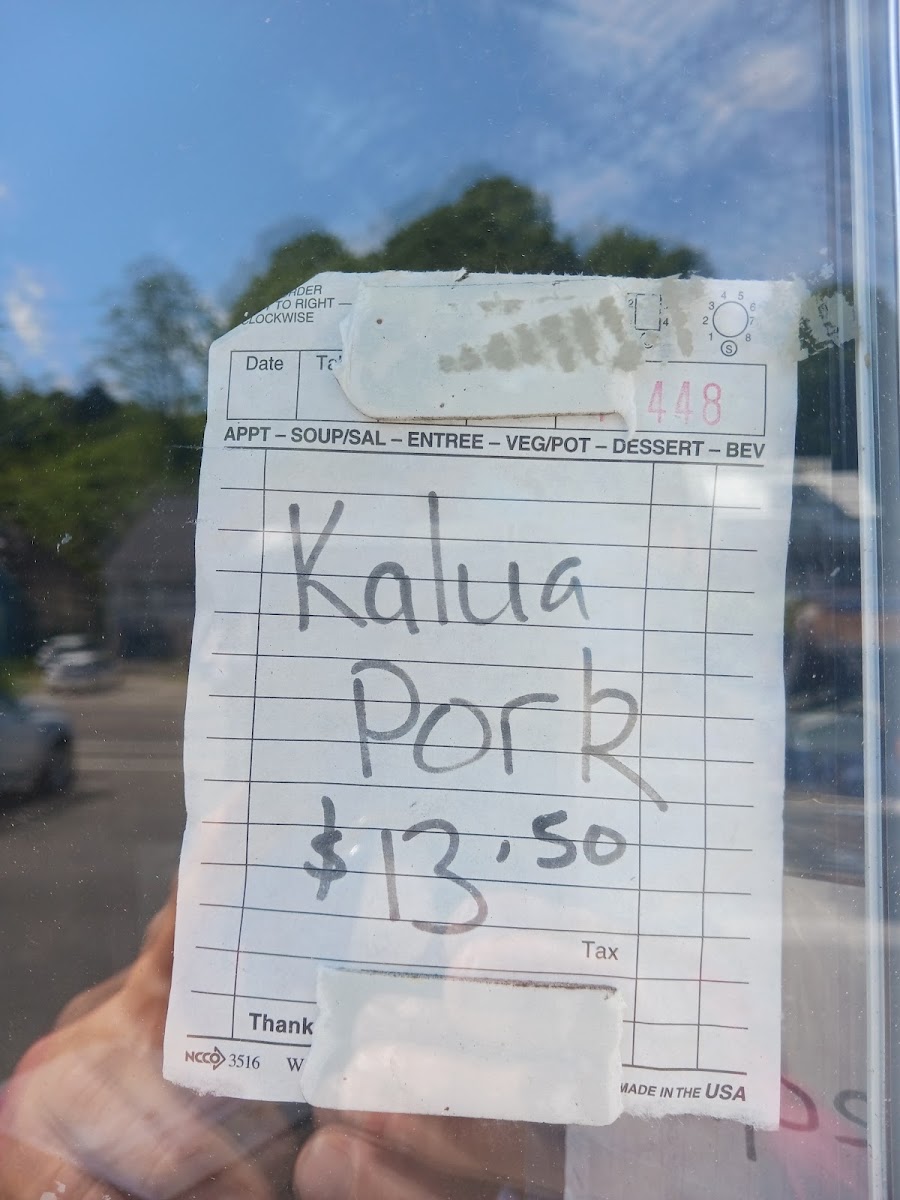 TO RIGHT —
Date
448
APPT – SOUP/SAL – ENTREE – VEG/POT – DESSERT – BEV
Kalua
Pork
$13.50
Tax
Thank
NCCO 3516 W
MADE IN THE USA